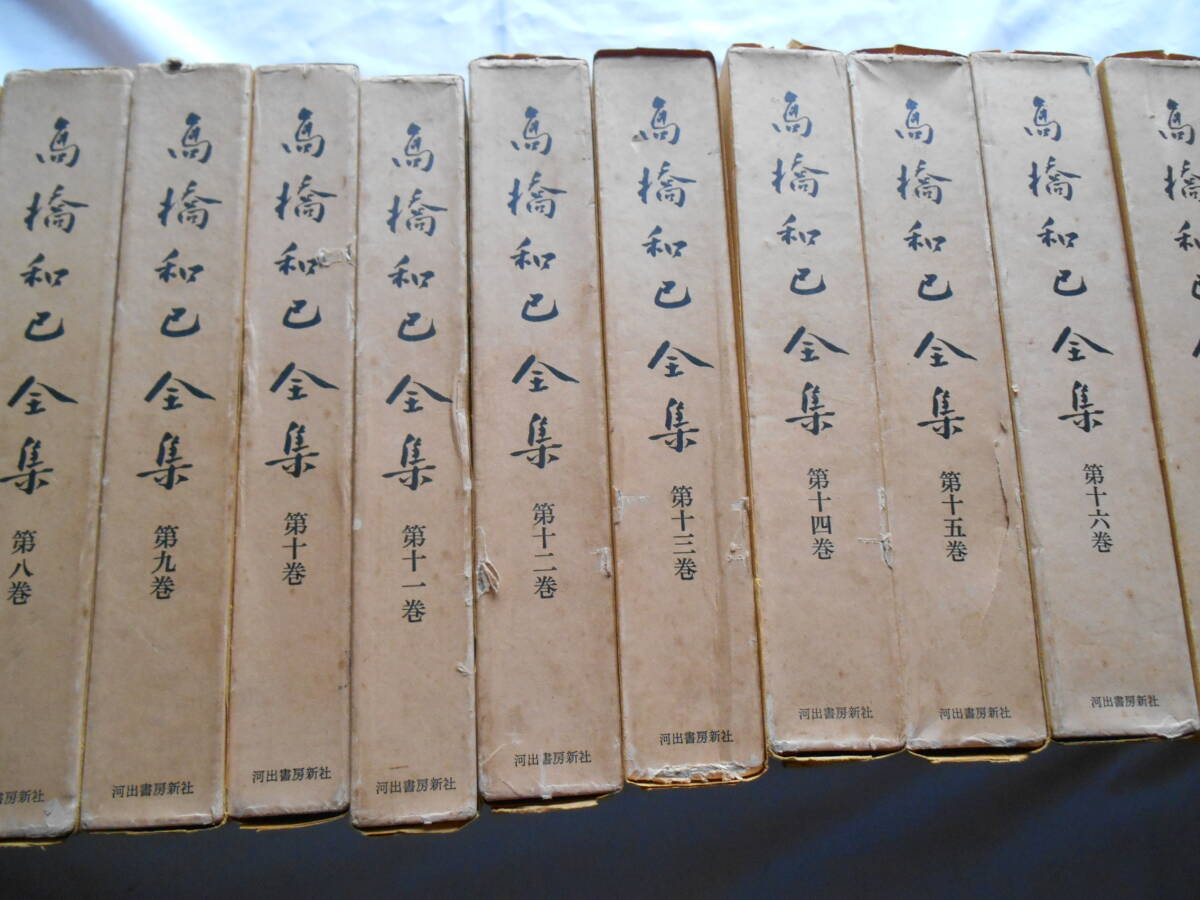 高橋和巳全集
第八巻
書房新社
高橋和巳全集
第九巻
河出書房新社
高橋和巳全集
第十巻
河出書房新社
高橋和巳全集
第十一巻
河出書房新社
高橋和巳全集
第十二巻
河出書房新社
高橋和巳全集
第十三巻
河出書房新社
高橋和巳全集
第十四巻
河出書房新社
高橋和巳全集
第十五巻
河出書房新社
高橋和巳全集
第十六巻
河出書房新社
高橋和